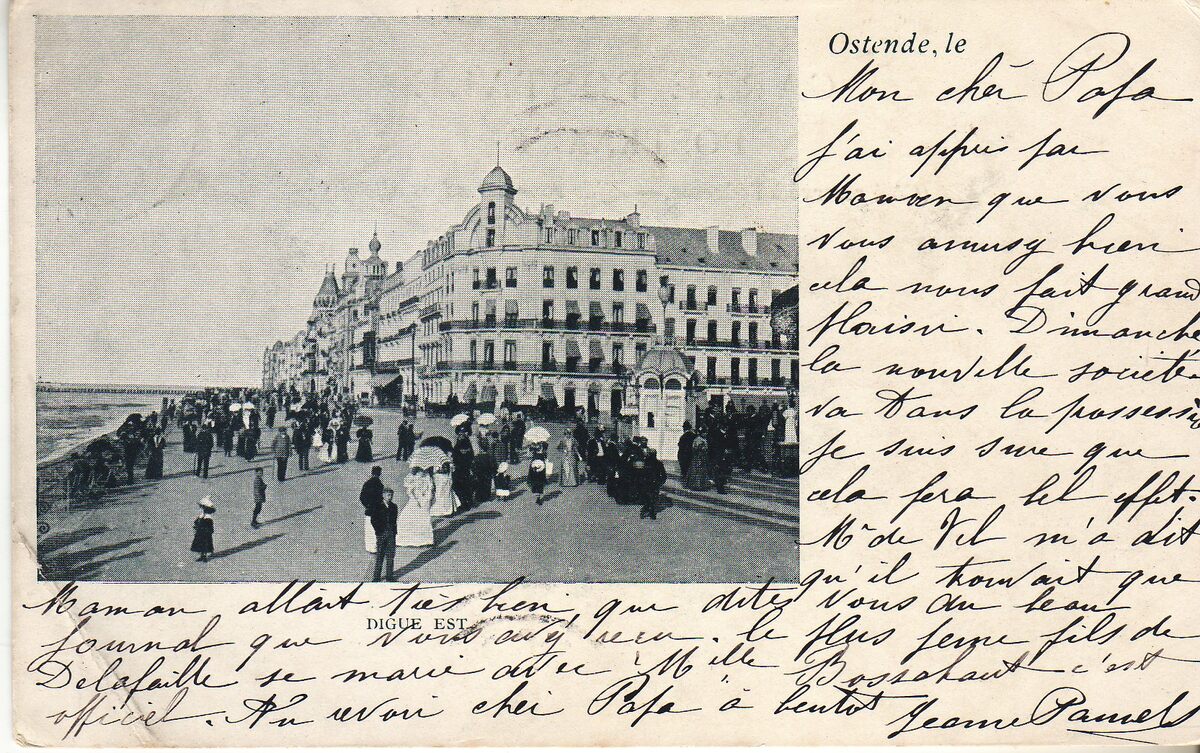 Ostende, le
Mon cher Papa
j'ai appris par
Maman que vous
vous amusez bien
cela nous fait grand
plaisir. Dimanche
la nouvelle société
va dans la possession
je suis sure que
cela fera bel effet.
Mr de Vil m'a dit
qu'il trouvait que
Maman allait très bien, que dites vous du beau
DIGUE EST
journal que vous avez recu. le plus jeune fils de
Delafaille se marie avec Mlle Bosschaert c'est
officiel. Au revoir cher Papa à bentot Jeanne Pauwels